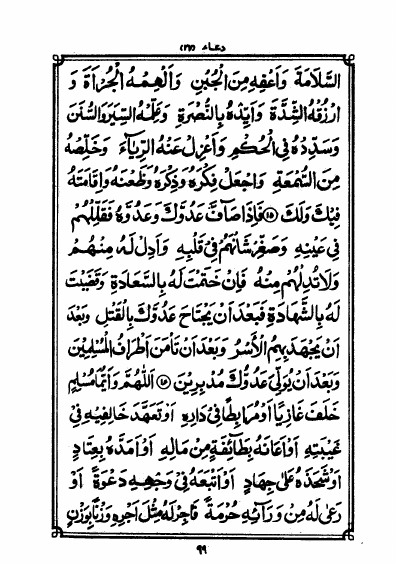 دعاء (٢٧)
السَّلَامَةَ وَأَعْفِهِ مِنَ الْجُبْنِ وَأَلْهِمْهُ الْجُرْأَةَ وَ
ارْزُقْهُ الشِّدَّةَ وَأَيِّدْهُ بِالنُّصْرَةِ وَعَلِّمْهُ السِّيَرَ وَالسُّنَنَ
وَسَدِّدْهُ فِي الْحُكْمِ وَاعْزِلْ عَنْهُ الرِّيَاءَ وَخَلِّصْهُ
مِنَ السُّمْعَةِ وَاجْعَلْ فِكْرَهُ وَذِكْرَهُ وَظَعْنَهُ وَإِقَامَتَهُ
فِيكَ وَلَكَ فَإِذَا صَافَّ عَدُوَّكَ وَعَدُوَّهُ فَقَلِّلْهُمْ
فِي عَيْنِهِ وَصَغِّرْ شَأْنَهُمْ فِي قَلْبِهِ وَأَدِلْ لَهُ مِنْهُمْ
وَلَا تُدِلْهُمْ مِنْهُ فَإِنْ خَتَمْتَ لَهُ بِالسَّعَادَةِ وَقَضَيْتَ
لَهُ بِالشَّهَادَةِ فَبَعْدَ أَنْ يَجْتَاحَ عَدُوَّكَ بِالْقَتْلِ وَبَعْدَ
أَنْ يَجْهَدَ بِهِمُ الْأَسْرُ وَبَعْدَ أَنْ تَأْمَنَ أَطْرَافُ الْمُسْلِمِينَ
وَبَعْدَ أَنْ يُوَلِّيَ عَدُوُّكَ مُدْبِرِينَ اَللّٰهُمَّ وَأَيُّمَا مُسْلِمٍ
خَلَفَ غَازِيًا أَوْ مُرَابِطًا فِي دَارِهِ أَوْ تَعَهَّدَ خَالِفِيهِ فِي
غَيْبَتِهِ أَوْ أَعَانَهُ بِطَائِفَةٍ مِنْ مَالِهِ أَوْ أَمَدَّهُ بِعِتَادٍ
أَوْ شَحَذَهُ عَلَى جِهَادٍ أَوْ أَتْبَعَهُ فِي وَجْهِهِ دَعْوَةً أَوْ
رَعَى لَهُ مِنْ وَرَائِهِ حُرْمَةً فَأَجْرِ لَهُ مِثْلَ أَجْرِهِ وَزْنًا بِوَزْنٍ
٩٩